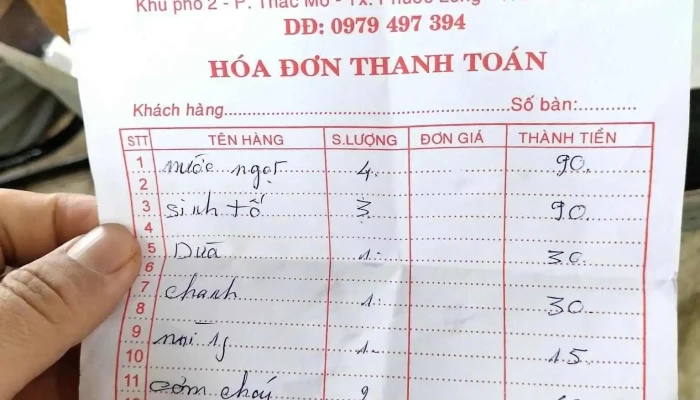 Khu phố 2 - P. Thác Mơ - Tx. Phước Long -
DĐ: 0979 497 394
HÓA ĐƠN THANH TOÁN
Khách hàng..................................................Số bàn:...........
STT TÊN HÀNG S.LƯỢNG ĐƠN GIÁ THÀNH TIỀN
1 nước ngọt 4 90
2
3 sinh tố 3 90
4
5 Dừa 1 30
6
7 chanh 1 30
8
9 1 15
10
11 cơm cháy 2